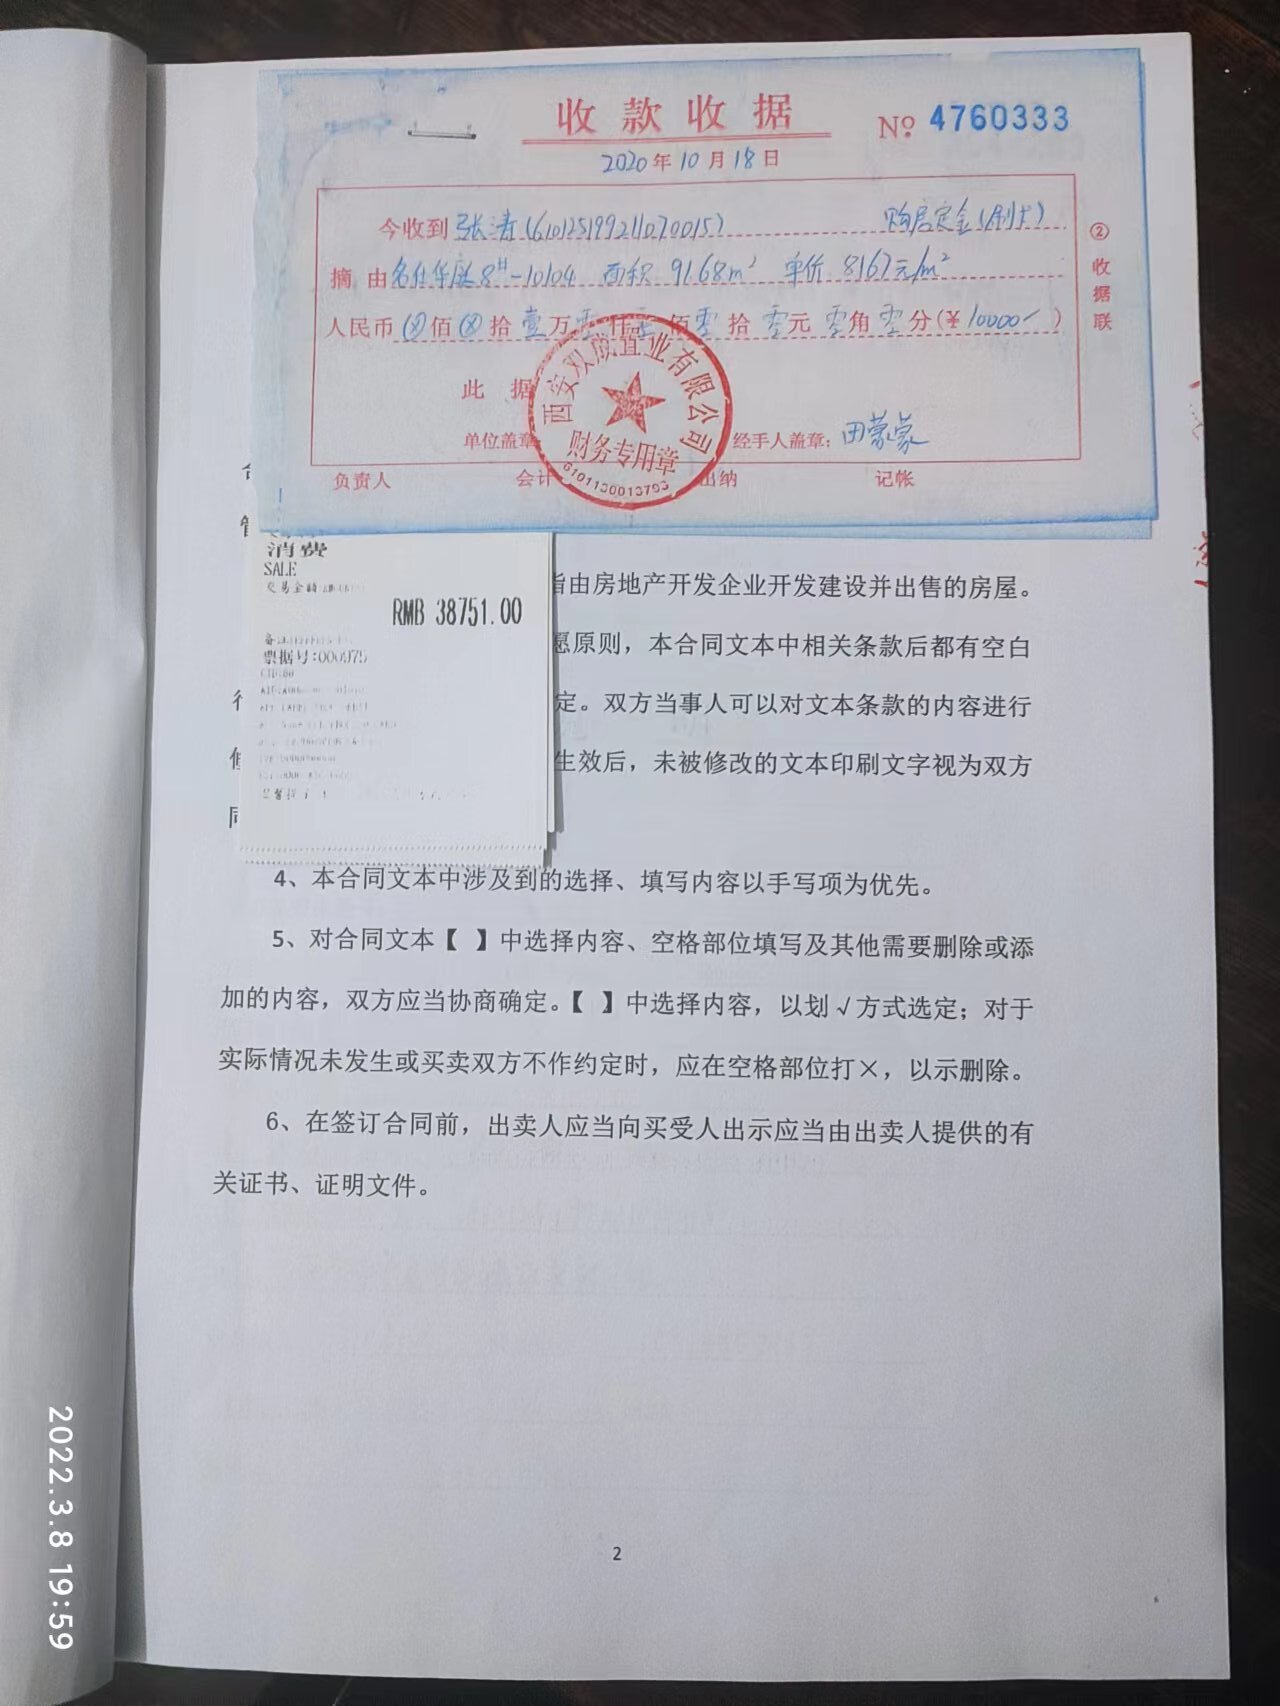 收款收据
№ 4760333
2020年10月18日
今收到张涛(610125199211070015) 购房定金(刷卡)
摘由名仕华庭8#-10104 面积 91.68m² 单价 8167元/m²
人民币⊗佰⊗拾壹万零仟零佰零拾零元零角零分(¥10000-)
此据
单位盖章: 经手人盖章:田蒙蒙
负责人 会计 出纳 记帐
②收据联
西安双欣置业有限公司
财务专用章
6101130013793
消费
SALE
交易金额
RMB 38751.00
票据号:000975
指由房地产开发企业开发建设并出售的房屋。
愿原则，本合同文本中相关条款后都有空白
定。双方当事人可以对文本条款的内容进行
生效后，未被修改的文本印刷文字视为双方
同
4、本合同文本中涉及到的选择、填写内容以手写项为优先。
5、对合同文本【 】中选择内容、空格部位填写及其他需要删除或添
加的内容，双方应当协商确定。【 】中选择内容，以划√方式选定；对于
实际情况未发生或买卖双方不作约定时，应在空格部位打×，以示删除。
6、在签订合同前，出卖人应当向买受人出示应当由出卖人提供的有
关证书、证明文件。
2
2022.3.8 19:59